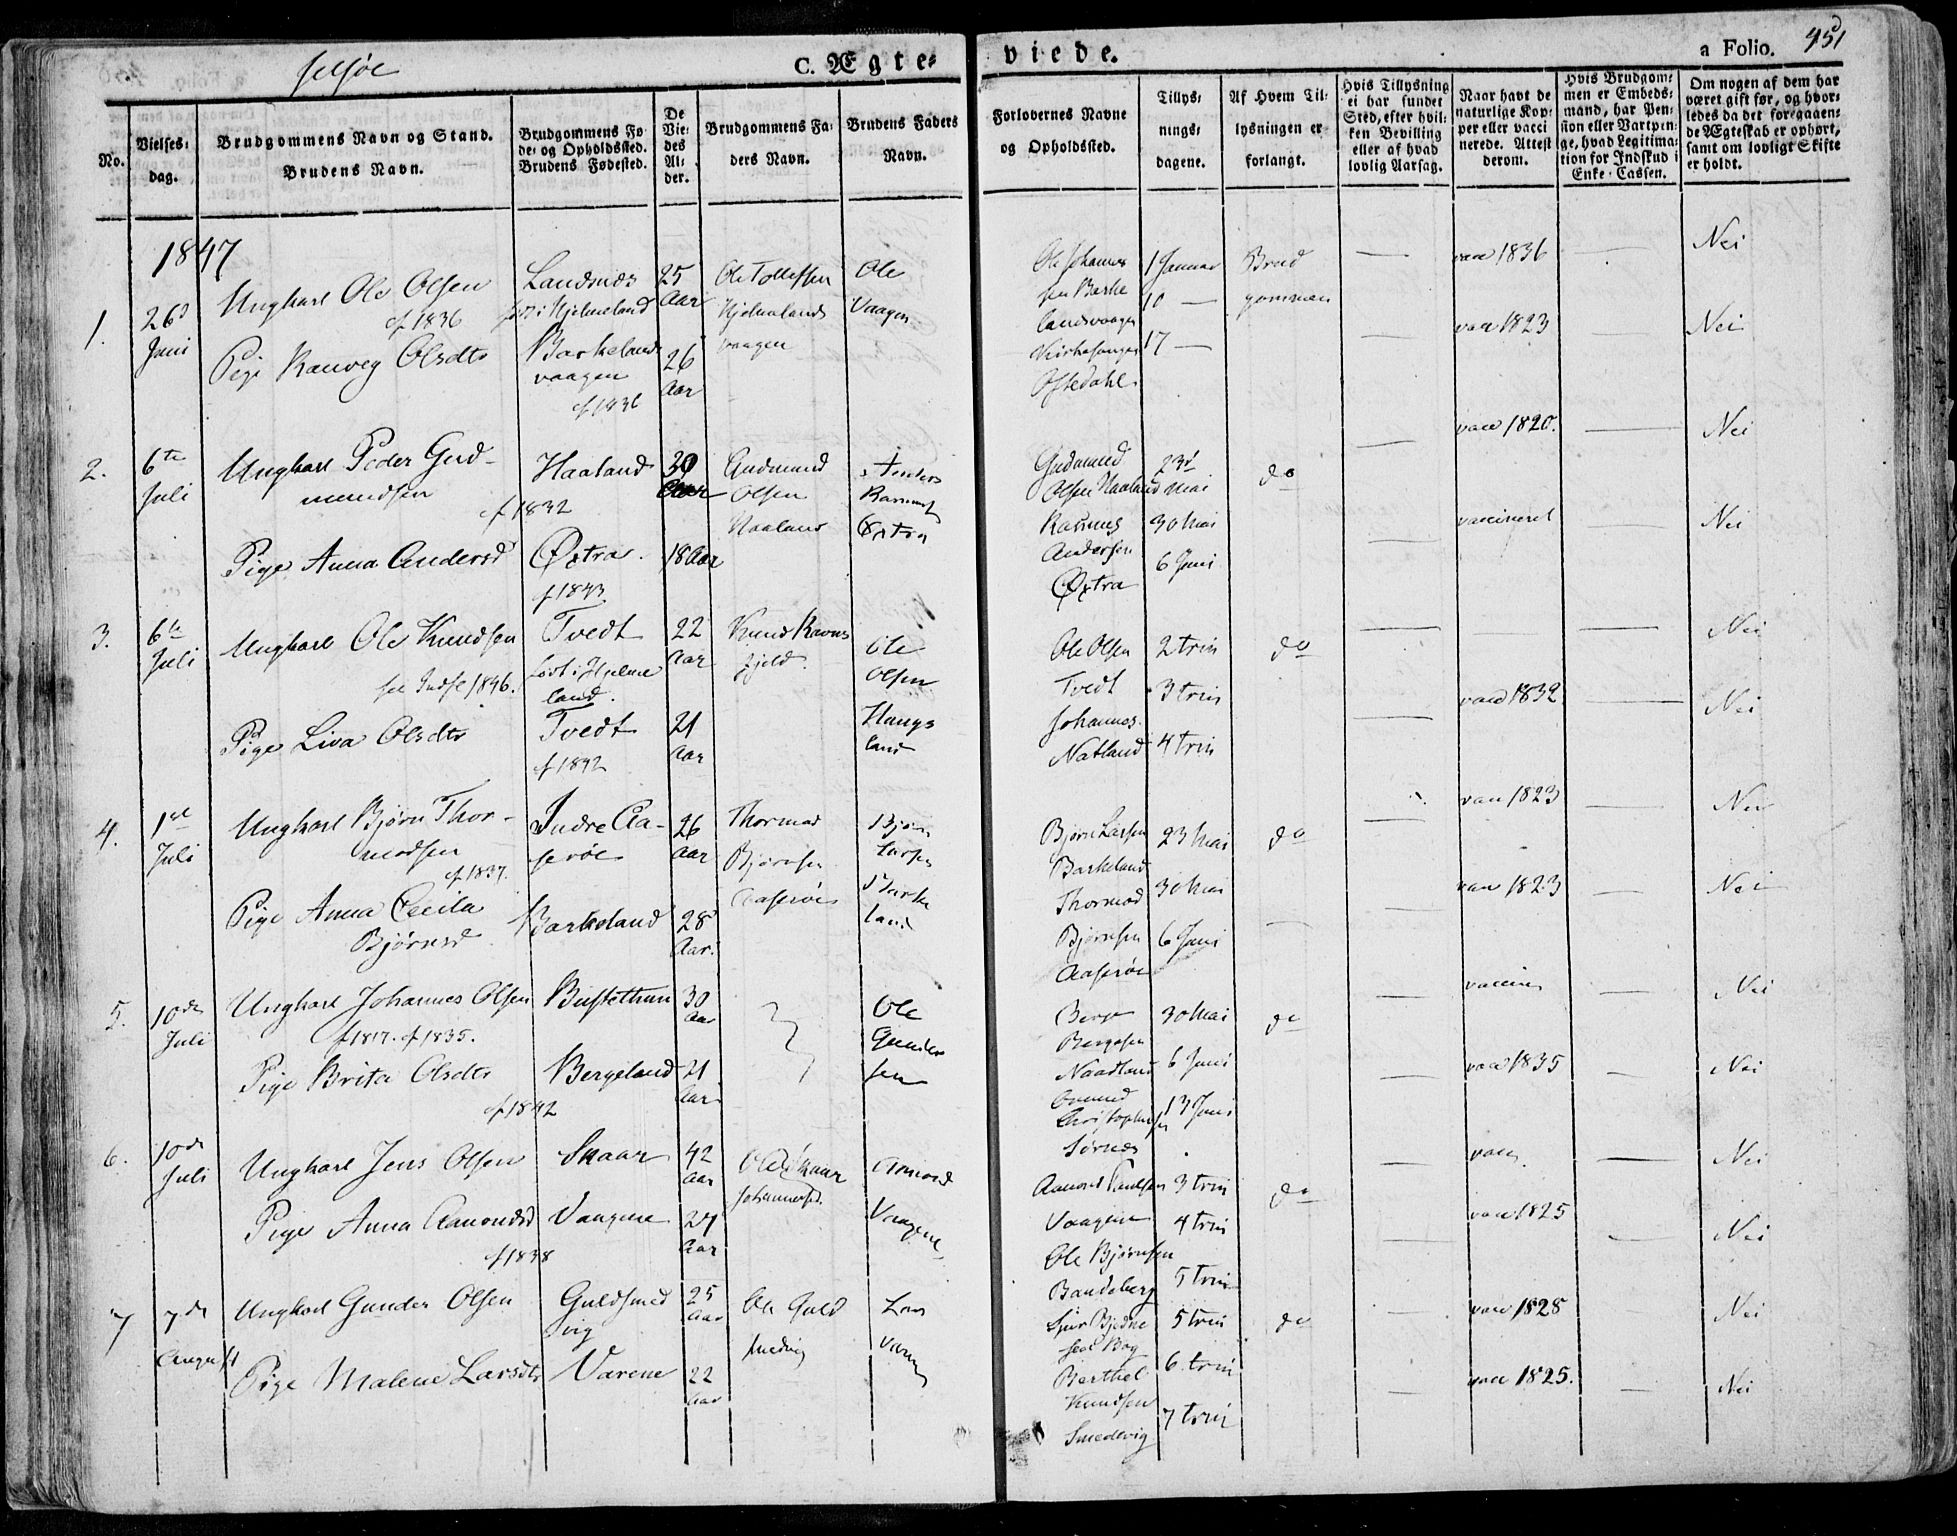 Jelsøe
C. Ægte-
viede.
a Folio. 451
No.
Vielses-
dag.
Brudgommens Navn og Stand.
Brudens Navn.
Brudgommens Fø-
de- og Opholdssted.
Brudens Fødested.
De
Vie-
des
Al-
der.
Brudgommens Fa-
ders Navn.
Brudens Faders
Navn.
Forlovernes Navne
og Opholdssted.
Tillys-
nings-
dagene.
Af Hvem Til-
lysningen er
forlangt.
Hvis Tillysning
ei har fundet
Sted, efter hvil-
ken Bevilling
eller af hvad
lovlig Aarsag.
Naar havt de
naturlige Kop-
per eller vacci
nerede. Attest
derom.
Hvis Brudgom-
men er Embeds-
mand, har Pen-
sion eller Vartpen-
ge, hvad Legitima-
tion for Indskud i
Enke-Cassen.
Om nogen af dem har
været gift før, og hvor-
ledes da det foregaaen-
de Ægteskab er ophørt,
samt om lovligt Skifte
er holdt.
1847
1.
26d
Juni
Ungkarl Ole Olsen
cf 1836
Pige Ranveg Olsdtr
Landsnæs
født i Hjelmeland
Barkelands
vaagen
cf 1836
25
Aar
26
Aar
Ole Tollefsen
Hjelmelands
vaagen
Ole
Vaagen
Ole Johannes
sen Barke
landsvaagen
Kirkesanger
Oftedahl
1 Januar
10 —
17 —
Brud
gommen
vacc 1836
vacc 1823
Nei
Nei
2.
6te
Juli
Ungkarl Peder Gud-
mundsen
cf 1832
Pige Anna Andersd
Haaland
Øxtra
cf 1843
30
Aar
18 Aar
Gudmund
Olsen
Haaland
Anders
Øxtra
Gudmund
Olsen Haaland
Rasmus
Andersen
Øxtra
23d
Mai
30 Mai
6 Juni
do
vacc 1820.
vaccineret
Nei
Nei
3.
6te
Juli
Ungkarl Ole Knudsen
1846.
Pige Liva Olsdtr
Tvedt
født i Hjelme
land.
Tvedt
cf 1842
22
Aar
21
Aar
Knud Ravns
fjeld.
Ole
Olsen
Hauge
land
Ole Olsen
Tvedt
Johannes
Natland
2 trin
3 trin
4 trin
do
vacc 1832
Nei
Nei
4.
1st
Juli
Ungkarl Bjørn Thor-
modsen
cf 1837.
Pige Anna Cecila
Bjørnsd
Indre Aa-
serøe
Barkeland
26
Aar
28
Aar.
Thormod
Bjørnsen
Aaserøe
Bjørn
Larsen
Barke
land
Bjørn Larsen
Barkeland
Thormod
Bjørnsen
Aaserøe
23 Mai
30 Mai
6 Juni
do
vacc 1823
vacc 1823
Nei
Nei
5.
10de
Juli
Ungkarl Johannes Olsen
f 1817. cf 1835.
Pige Brita Olsdtr
cf 1842
Bustethun
Bergeland
30
Aar
21
Aar.
Ole
Gunder
sen
Berge
Bergesen
Naadland
Christophersen
Sørnes
30 Mai
6 Juni
13 Juni
do
vaccine
vacc 1835
Nei
Nei
6.
10de
Juli
Ungkarl Jens Olsen
Pige Anna Aamondsd
cf 1838
Skaar
Vaagene
42
Aar
24
Aar
Ole Skaar
Johannessd.
Aamond
Vaagene
Aamond Paulsen
Vaagene
Ole Bjørnsen
Bandeberg
3 trin
4 trin
5 trin
do
vacc
vacc 1825
Nei
Nei
7
7de
August
Ungkarl Gunder Olsen
Pige Malene Larsdtr
Guldsmed
vig
Varene
25
Aar
22
Aar
Ole Guld
smedvig
Lars
Varene
Sjur Bjødne
Berthel
Knudsen
Smedevig
5 trin
6 trin
7 trin
do
vacc 1828
vacc 1825.
Nei
Nei